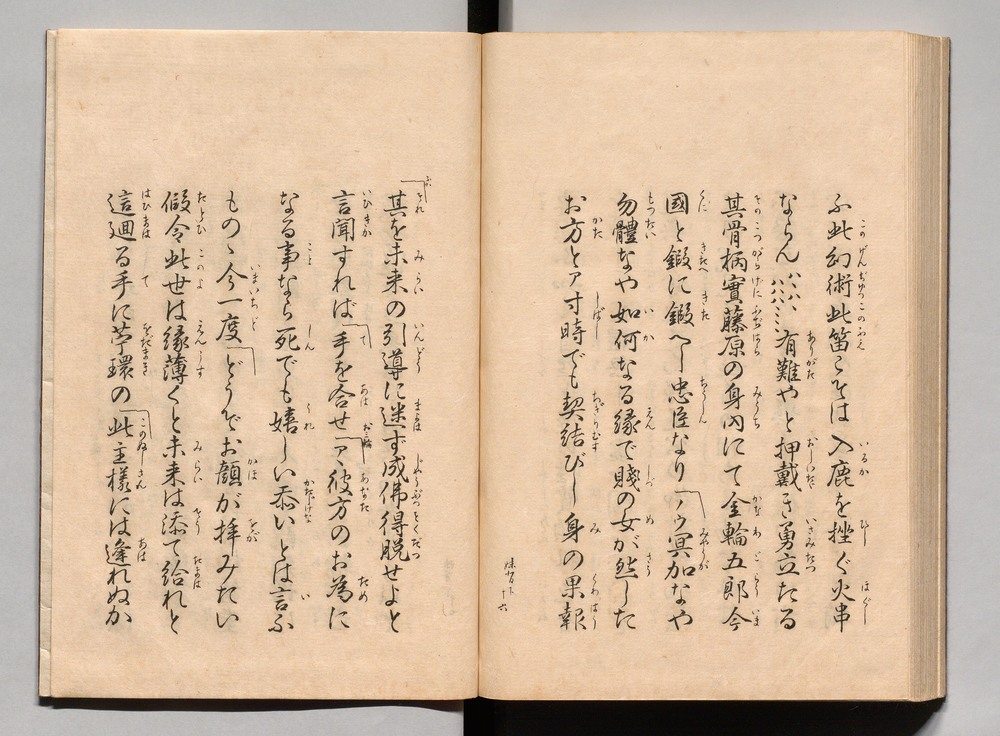 ふ此幻術此笛こそは入鹿を挫ぐ火串
ならん有難やと押戴き勇立たる
其骨柄實藤原の身內にて金輪五郎今
國と鍛に鍛へし忠臣なり「アヽ冥加なや
勿體なや如何なる縁で賤の女が然した
お方と『ア寸時でも契結びし身の果報
其を未来の引導に迷す成佛得脱せよと
言聞すれば「手を合せ「アヽ彼方のお為に
なる事なら死でも嬉しい忝いとは言ふ
ものゝ今一度「どうぞお顔が拝みたい
假令此世は縁薄くと未来は添て給れと
這廻る手に苧環の「此主様には逢れぬか